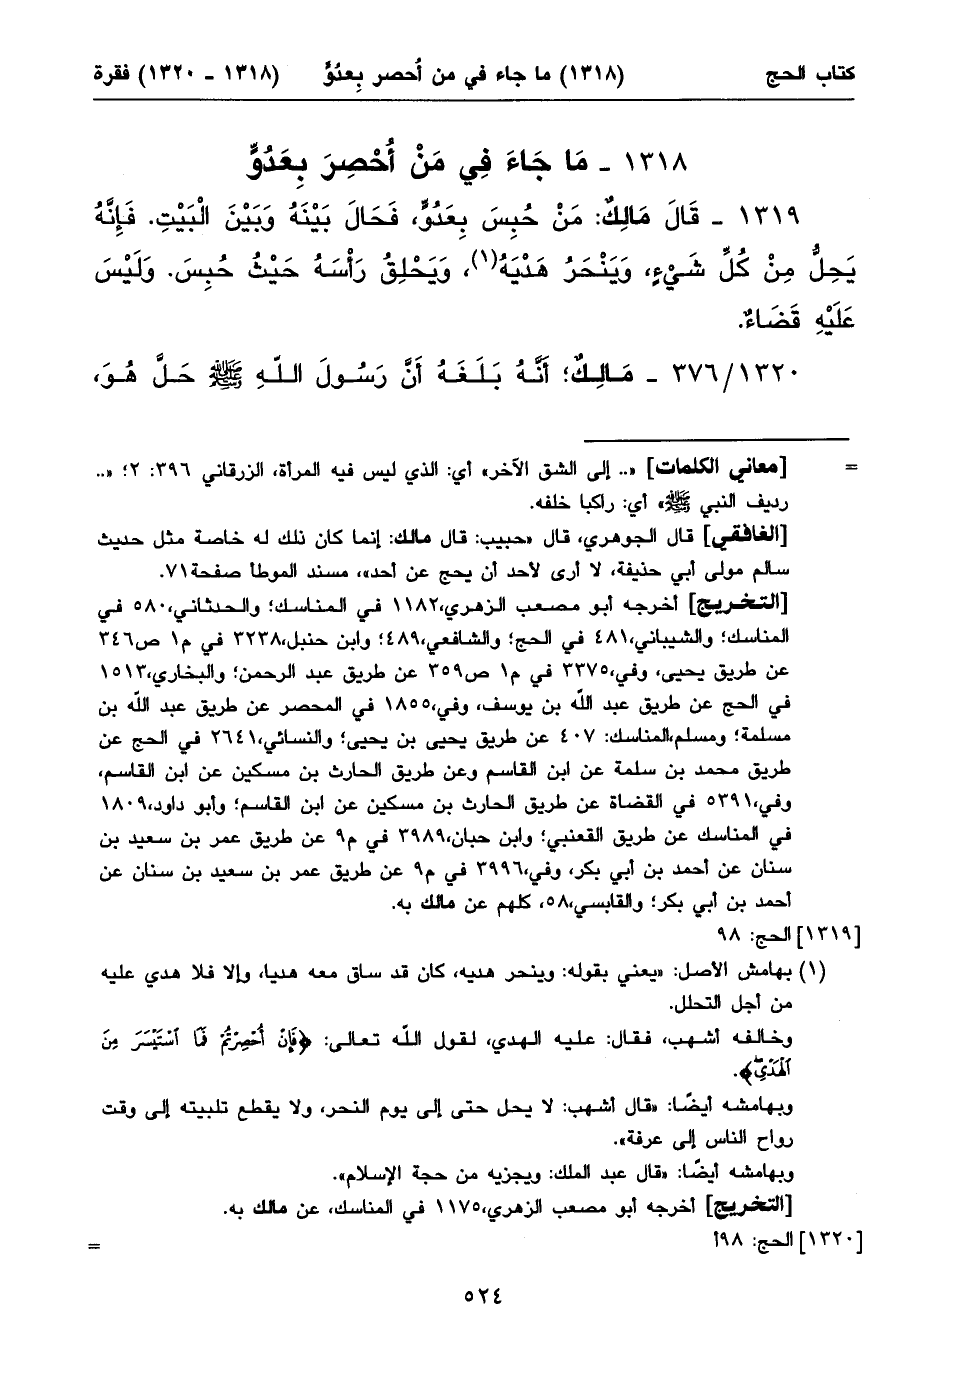 كتاب الحج (١٣١٨) ما جاء في من أُحصر بِعدُوٍّ (١٣١٨ - ١٣٢٠) فقرة
١٣١٨ - مَا جَاءَ فِي مَنْ أُحْصِرَ بِعَدُوٍّ
١٣١٩ - قَالَ مَالِكٌ: مَنْ حُبِسَ بِعَدُوٍّ، فَحَالَ بَيْنَهُ وَبَيْنَ الْبَيْتِ. فَإِنَّهُ
يَحِلُّ مِنْ كُلِّ شَيْءٍ، وَيَنْحَرُ هَدْيَهُ(١)، وَيَحْلِقُ رَأْسَهُ حَيْثُ حُبِسَ. وَلَيْسَ
عَلَيْهِ قَضَاءٌ.
٣٧٦/١٣٢٠ - مَالِكٌ؛ أَنَّهُ بَلَغَهُ أَنَّ رَسُولَ اللّهِ ﷺ حَلَّ هُوَ،
= [معاني الكلمات] «.. إلى الشق الآخر» أي: الذي ليس فيه المرأة، الزرقاني ٣٩٦: ٢؛ «..
رديف النبي ﷺ» أي: راكبا خلفه.
[الغافقي] قال الجوهري، قال «حبيب: قال مالك: إنما كان ذلك له خاصة مثل حديث
سالم مولى أبي حذيفة، لا أرى لأحد أن يحج عن أحد»، مسند الموطأ صفحة٧١.
[التخريج] أخرجه أبو مصعب الزهري،١١٨٢ في المناسك؛ والحدثاني،٥٨٠ في
المناسك؛ والشيباني،٤٨١ في الحج؛ والشافعي،٤٨٩؛ وابن حنبل،٣٢٣٨ في م١ ص٣٤٦
عن طريق يحيى، وفي،٣٣٧٥ في م١ ص٣٥٩ عن طريق عبد الرحمن؛ والبخاري،١٥١٣
في الحج عن طريق عبد اللّه بن يوسف، وفي،١٨٥٥ في المحصر عن طريق عبد اللّه بن
مسلمة؛ ومسلم،المناسك: ٤٠٧ عن طريق يحيى بن يحيى؛ والنسائي،٢٦٤١ في الحج عن
طريق محمد بن سلمة عن ابن القاسم وعن طريق الحارث بن مسكين عن ابن القاسم،
وفي،٥٣٩١ في القضاة عن طريق الحارث بن مسكين عن ابن القاسم؛ وأبو داود،١٨٠٩
في المناسك عن طريق القعنبي؛ وابن حبان،٣٩٨٩ في م٩ عن طريق عمر بن سعيد بن
سنان عن أحمد بن أبي بكر، وفي،٣٩٩٦ في م٩ عن طريق عمر بن سعيد بن سنان عن
أحمد بن أبي بكر؛ والقابسي،٥٨، كلهم عن مالك به.
[١٣١٩] الحج: ٩٨
(١) بهامش الأصل: «يعني بقوله: وينحر هديه، كان قد ساق معه هديا، وإلا فلا هدي عليه
من أجل التحلل.
وخالفه أشهب، فقال: عليه الهدي، لقول اللّه تعالى: ﴿فَإِنْ أُحْصِرْتُمْ فَمَا ٱسْتَيْسَرَ مِنَ
ٱلْهَدْيِ﴾.
وبهامشه أيضًا: «قال أشهب: لا يحل حتى إلى يوم النحر، ولا يقطع تلبيته إلى وقت
رواح الناس إلى عرفة».
وبهامشه أيضًا: «قال عبد الملك: ويجزيه من حجة الإسلام».
[التخريج] أخرجه أبو مصعب الزهري،١١٧٥ في المناسك، عن مالك به.
[١٣٢٠] الحج: ٩٨أ =
٥٢٤